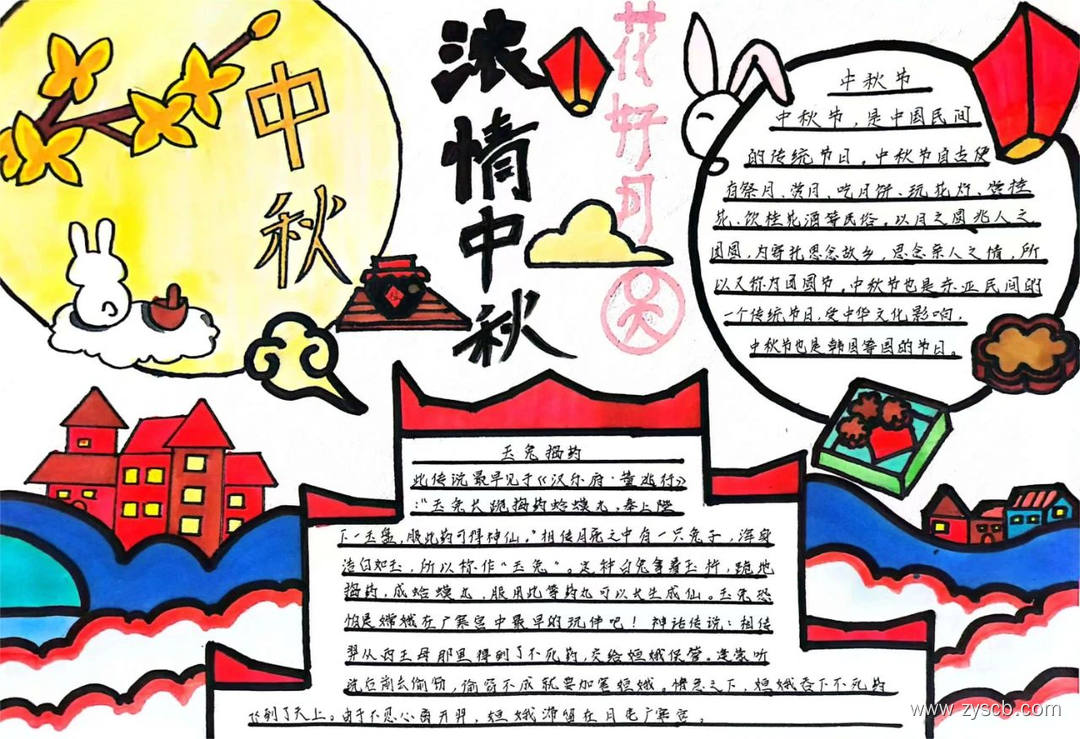 中秋
浓情中秋
花好月
中秋节
中秋节,是中国民间
的传统节日。中秋节自古便
有祭月、赏月、吃月饼、玩花灯、赏桂
花、饮桂花酒等民俗,以月之圆兆人之
团圆,为寄托思念故乡,思念亲人之情,所
以又称为团圆节。中秋节也是东亚民间的
一个传统节日,受中华文化影响,
中秋节也是韩国等国的节日。
玉兔捣药
此传说最早见于《汉乐府·董逃行》
:“玉兔长跪捣药蛤蟆丸,奉上陛
下一玉盘,服此药可得神仙。”相传月亮之中有一只兔子,浑身
洁白如玉,所以称作“玉兔”。这种白兔拿着玉杵,跪地
捣药,成蛤蟆丸,服用此等药丸可以长生成仙。玉兔恐
怕是嫦娥在广寒宫中最早的玩伴吧!神话传说:相传
羿从西王母那里得到了不死药,交给姮娥保管。逢蒙听
说后前去偷窃,偷窃不成就要加害姮娥。情急之下,姮娥吞下不死药
飞到了天上。由于不忍心离开羿,姮娥滞留在月宫广寒宫。
www.zyscb.com